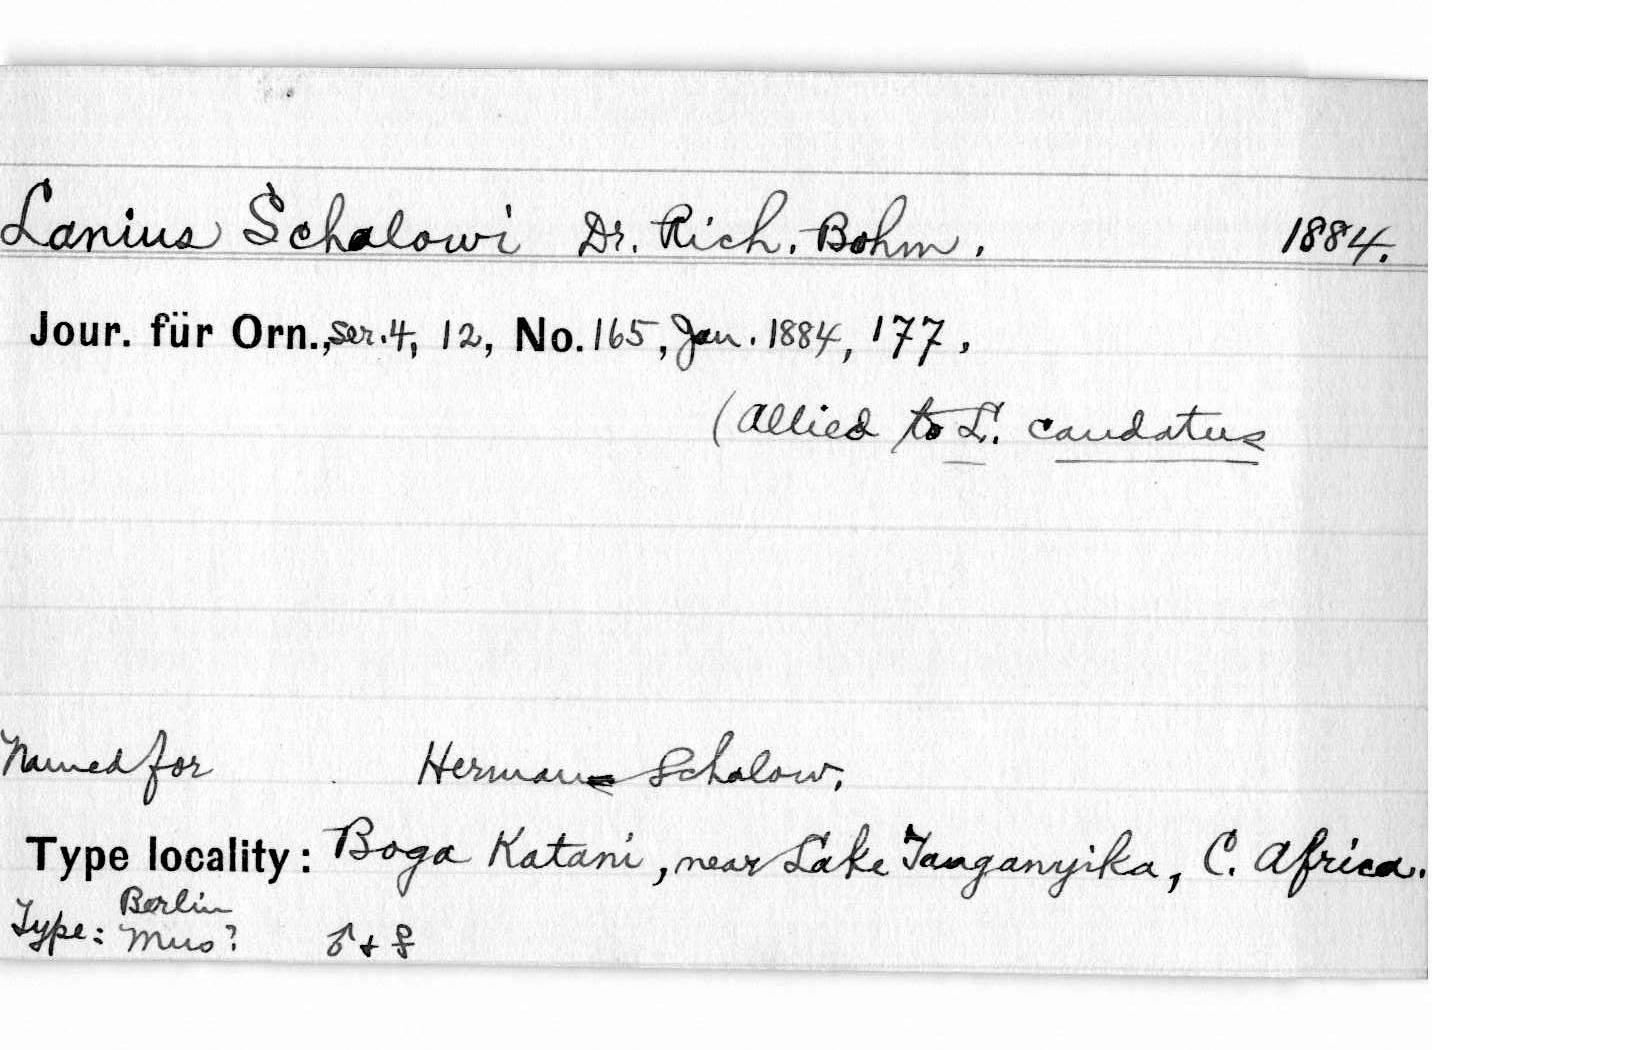 Lanius Schalowi Dr. Rich. Bohm. 1884.
Jour. für Orn., ser. 4, 12, No. 165, Jan. 1884, 177.
(Allied to L. caudatus
Named for Herman Schalow,
Type locality: Boga Katani, near Lake Tanganyika, C. Africa.
Berlin
Type: Mus? ♂ + ♀